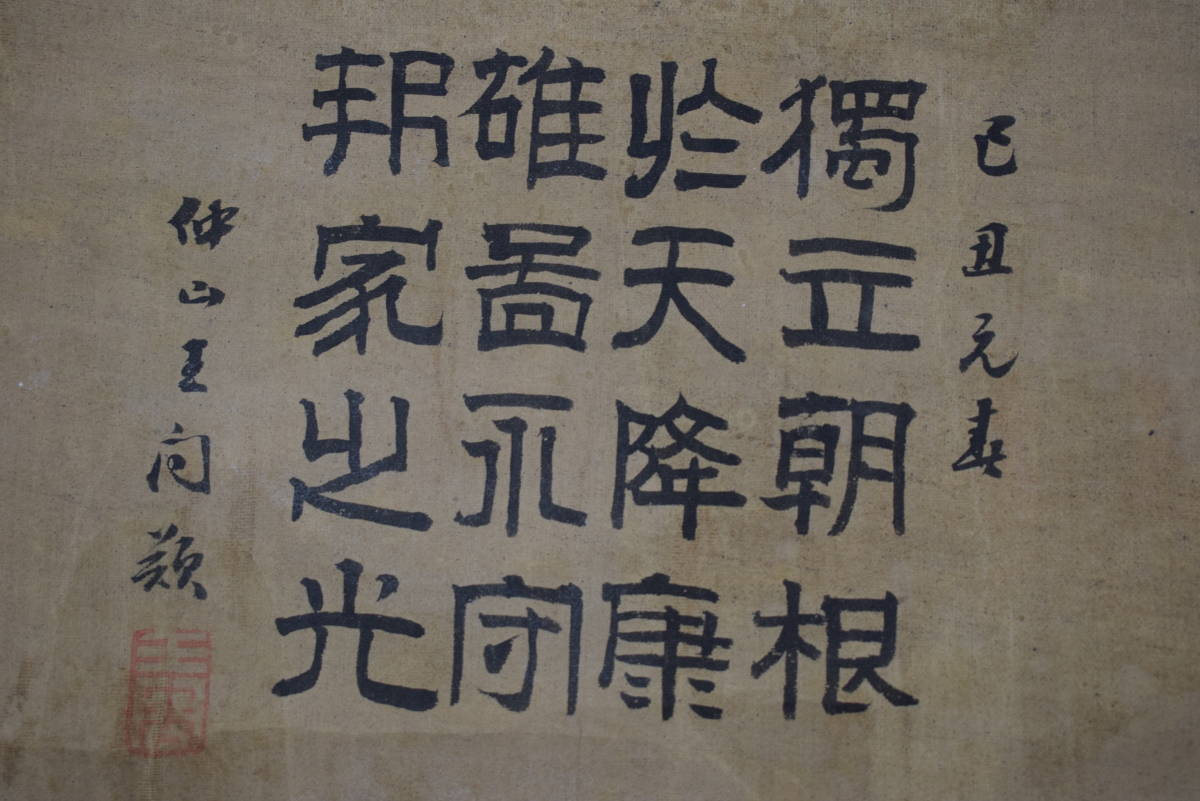 己丑元春
獨立朝根
於天降康
雄啚永守
邦家之光
仲山王问題